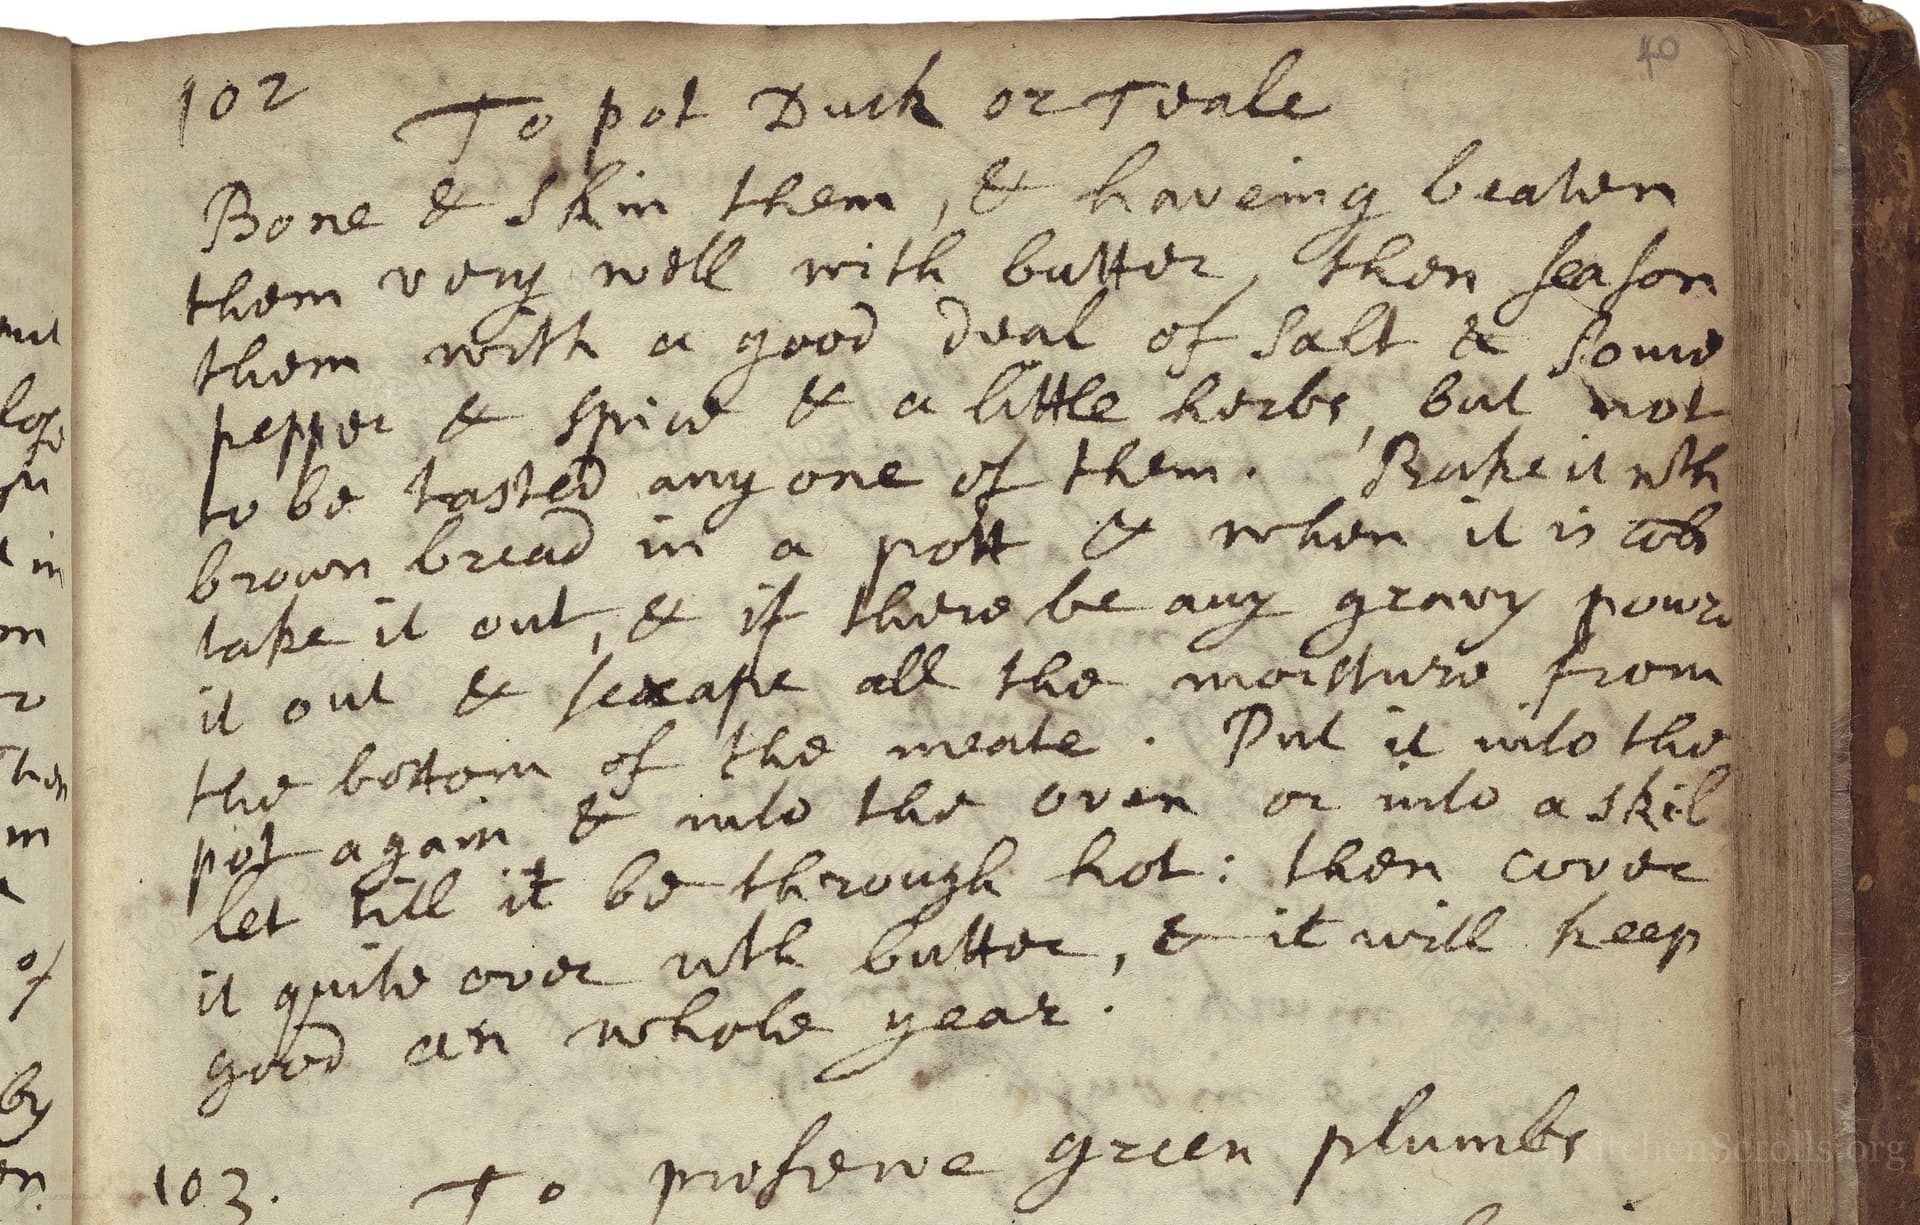 40
102 To pot Duck or Teale
Bone & skin them, & haveing beaten
them very well with butter, then season
them with a good deal of salt & some
pepper & spice & a little herbs, but not
to be tasted any one of them. Bake it wth
brown bread in a pott & when it is
take it out, & if there be any gravy powre
it out & scrape all the moisture from
the bottom of the meate. Put it into the
pot again & into the oven or into a skil
let till it be through hot: then cover
it quite over wth butter, & it will keep
good an whole year.
103. To preserve green plumbs